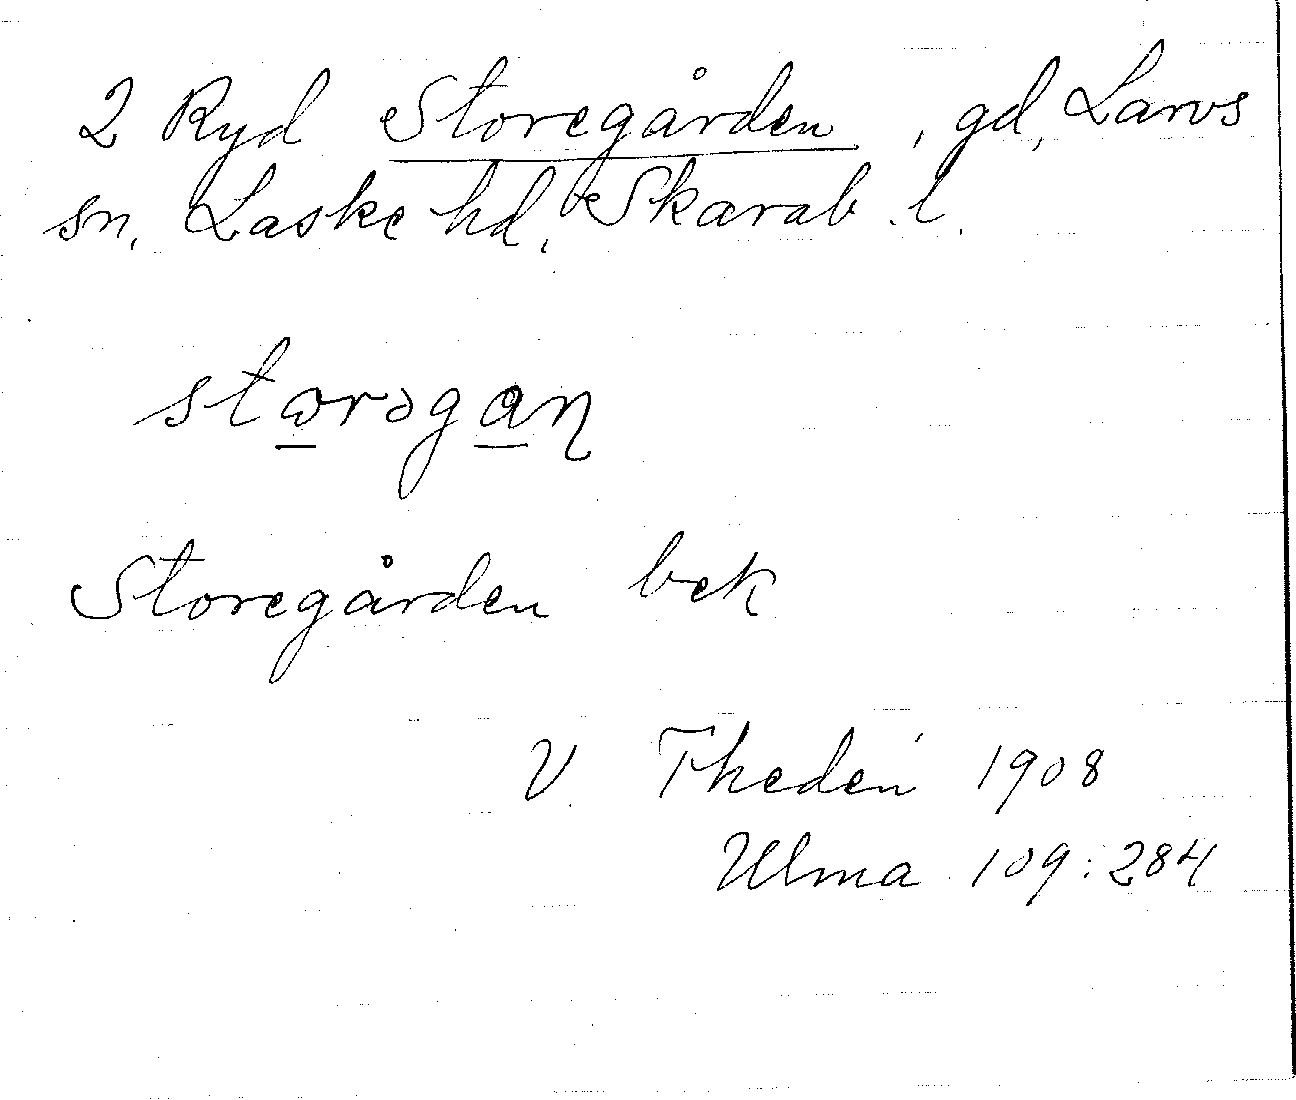 2 Ryd Storegården, gd, Larvs
sn, Laske hd, Skarab. l.
stωrəgan̡
Storegården bek
V Thedén 1908
Ulma 109:284